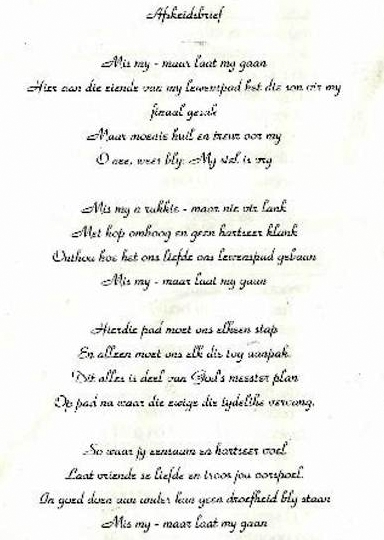 Afskeidsbrief
Mis my - maar laat my gaan
Hier aan die einde van my lewenspad het die son vir my
finaal gesak
Maar moenie huil en treur oor my
O nee, wees bly. My siel is vry
Mis my n rukkie - maar nie vir lank
Met kop omhoog en geen hartseer klank
Onthou hoe het ons liefde ons lewenspad gebaan
Mis my - maar laat my gaan
Hierdie pad moet ons elkeen stap
En alleen moet ons elk die tog aanpak.
Dit alles is deel van God's meester plan
Op pad na waar die ewige die tydelike vervang.
So waar jy eensaam en hartseer voel
Laat vriende se liefde en troos jou oorspoel.
In goed doen aan ander kan geen droefheid bly staan
Mis my - maar laat my gaan